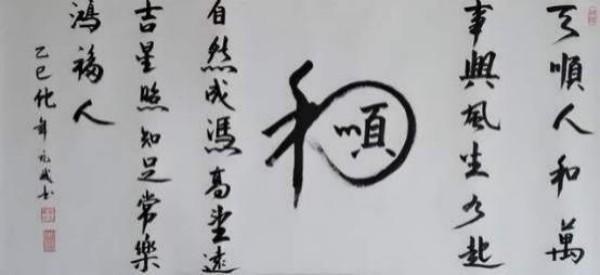 天順人和萬
事興風生水起
和順
自然成馮高望遠
吉星照知足常樂
鴻福人
乙巳年書